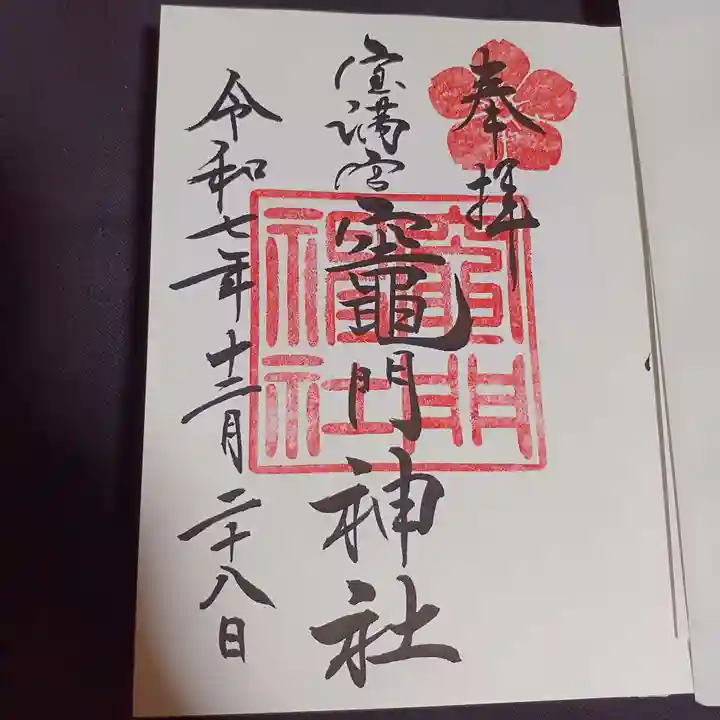 奉拝
宝満宮竈門神社
令和七年十二月二十八日
竈門神社